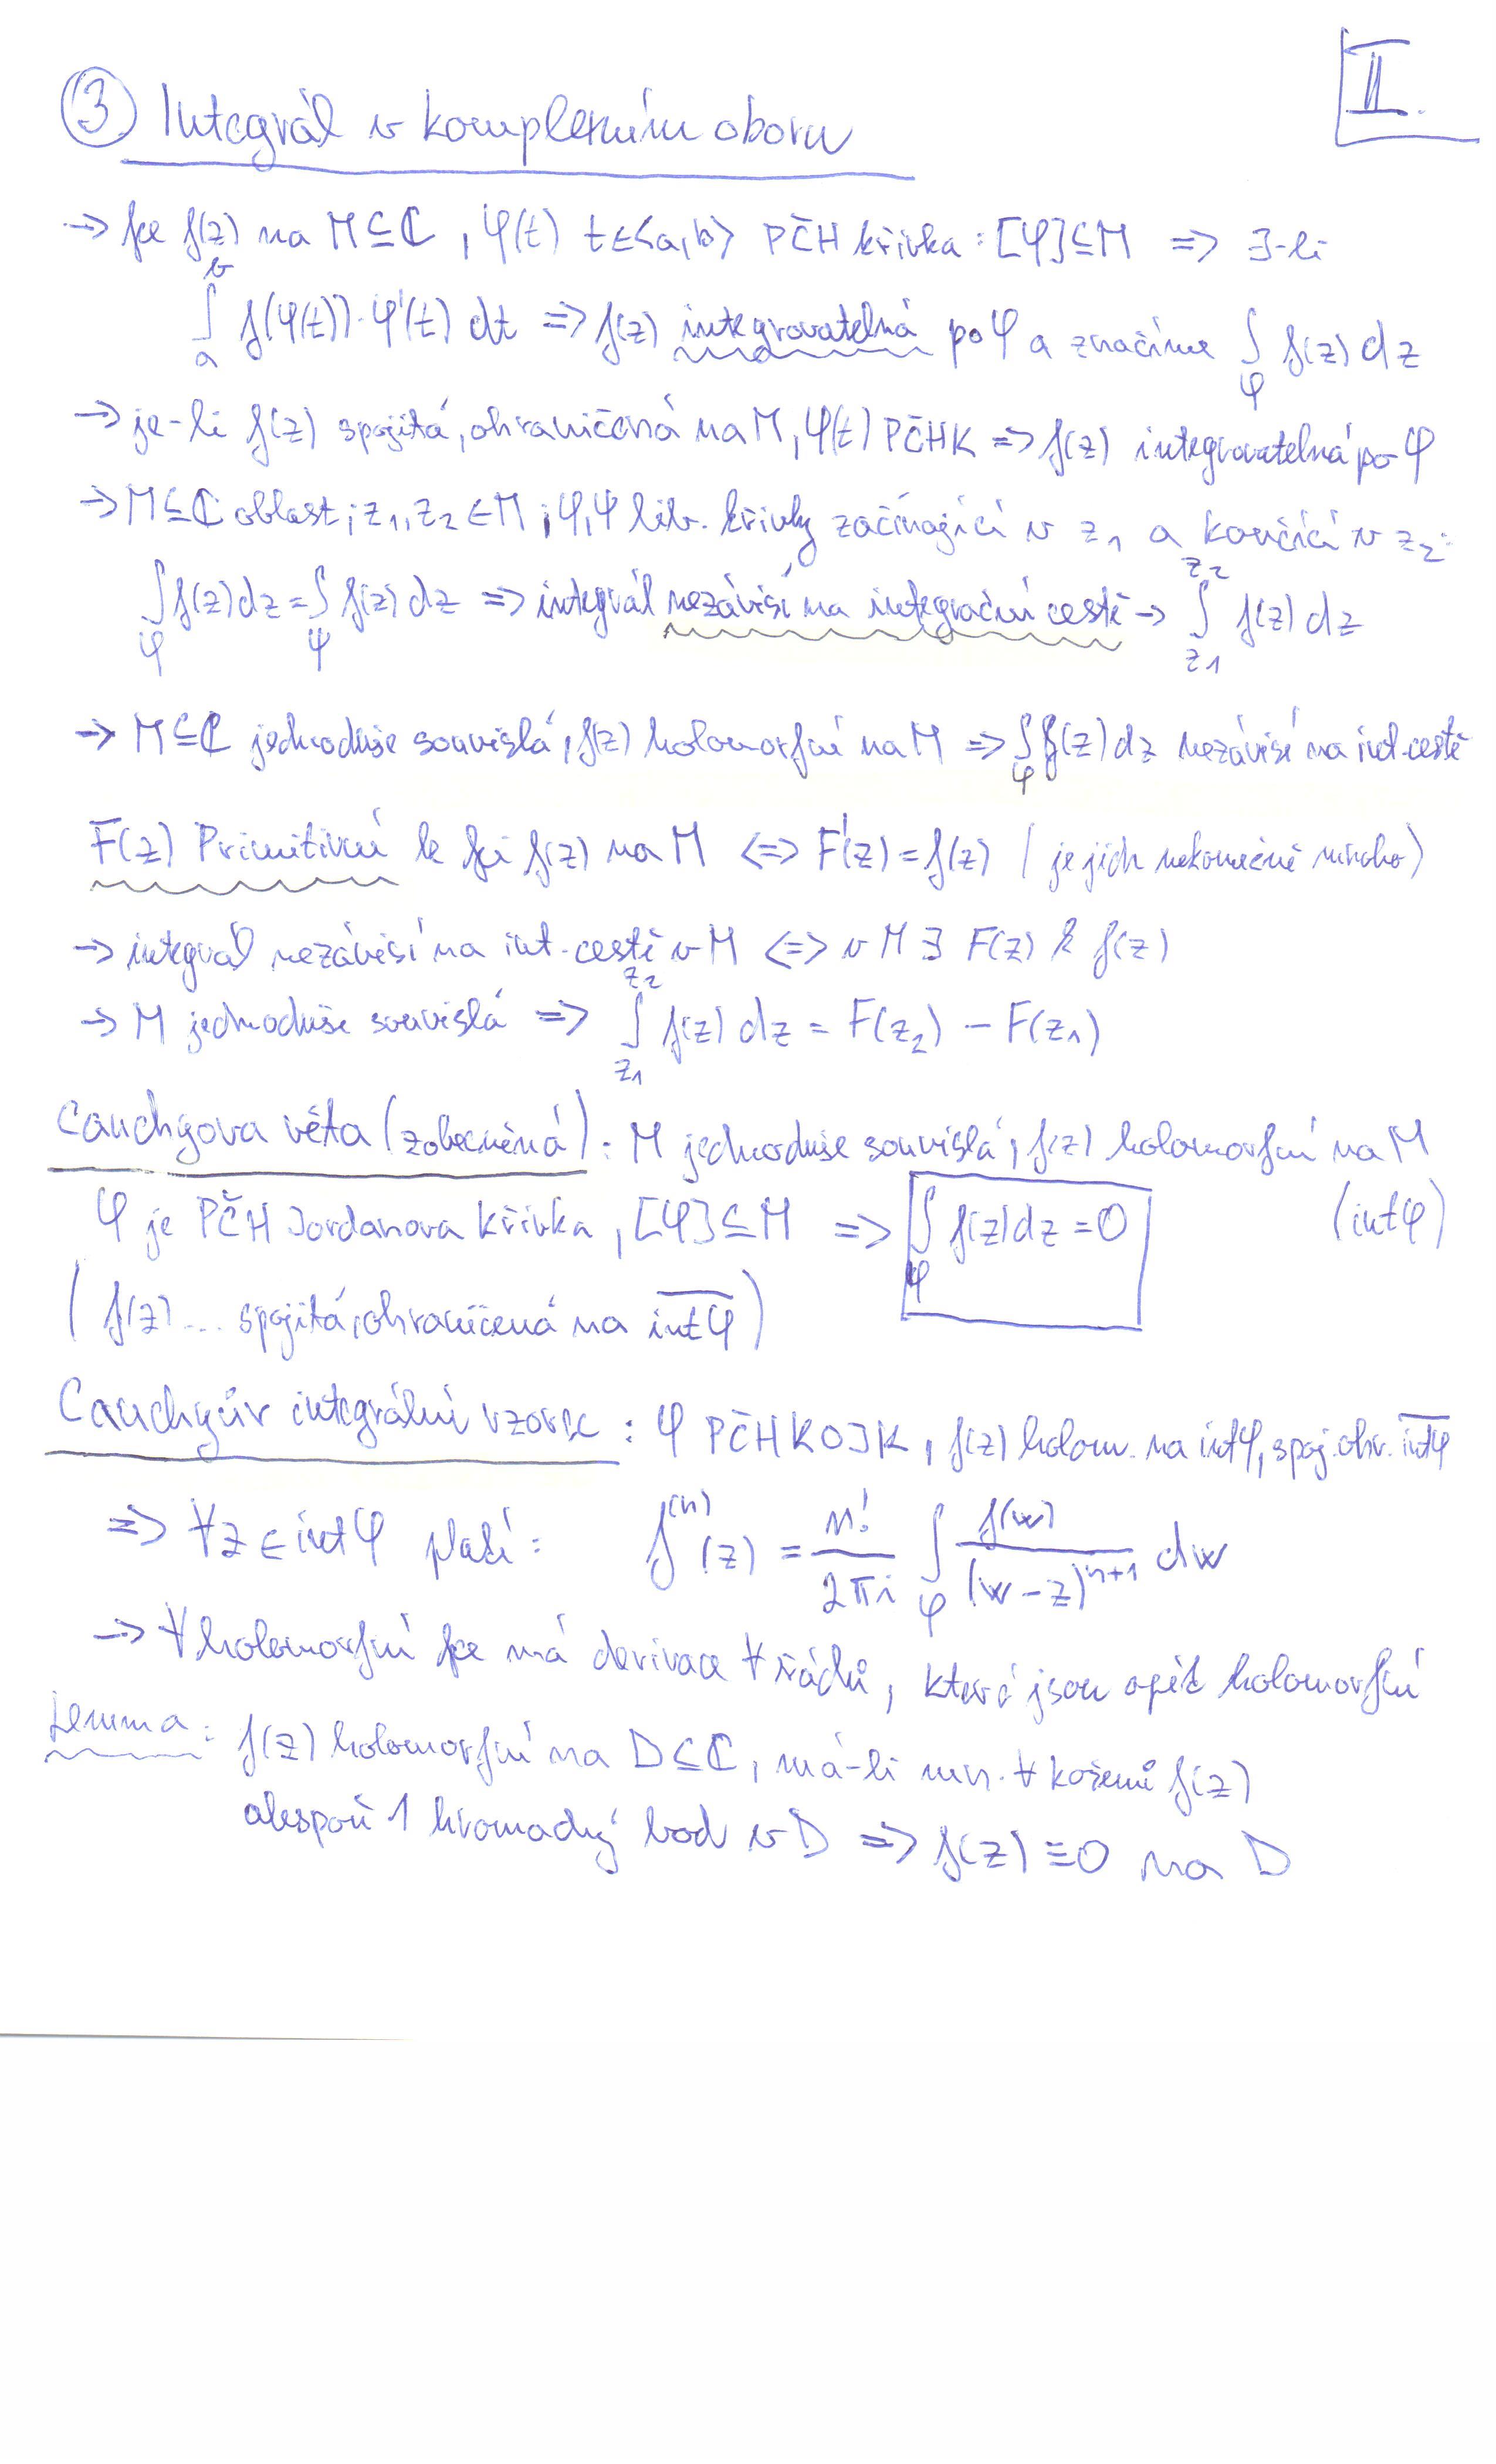 II.
③ Integrál v komplexním oboru
→ fce f(z) na M⊆ℂ, φ(t) t∈<a,b> PČH křivka: [φ]⊆M => ∃-li
∫_a^b f(φ(t))·φ'(t) dt => f(z) integrovatelná po φ a značíme ∫_φ f(z) dz
→ je-li f(z) spojitá, ohraničená na M, φ(t) PČHK => f(z) integrovatelná po φ
→ M⊆ℂ oblast; z₁,z₂∈M; φ,ψ lib. křivky začínající v z₁ a končící v z₂:
∫_φ f(z)dz = ∫_ψ f(z)dz => integrál nezávisí na integrační cestě → ∫_{z₁}^{z₂} f(z) dz
→ M⊆ℂ jednoduše souvislá, f(z) holomorfní na M => ∫_φ f(z)dz nezávisí na int. cestě
F(z) Primitivní k fci f(z) na M <=> F'(z) = f(z) (je jich nekonečně mnoho)
→ integrál nezávisí na int. cestě v M <=> v M ∃ F(z) k f(z)
→ M jednoduše souvislá => ∫_{z₁}^{z₂} f(z) dz = F(z₂) − F(z₁)
Cauchyova věta (zobecněná): M jednoduše souvislá, f(z) holomorfní na M
φ je PČH Jordanova křivka, [φ]⊆M => ∫_φ f(z)dz = 0 (intφ)
(f(z) ... spojitá, ohraničená na \overline{intφ})
Cauchyův integrální vzorec: φ PČHKOJK, f(z) holom. na intφ, spoj. ohr. \overline{intφ}
=> ∀z∈intφ platí: f^{(n)}(z) = \frac{n!}{2πi} ∫_φ \frac{f(w)}{(w−z)^{n+1}} dw
→ ∀ holomorfní fce má derivace ∀ řádů, které jsou opět holomorfní
Lemma: f(z) holomorfní na D⊆ℂ, má-li mn. ∀ kořenů f(z)
alespoň 1 hromadný bod v D => f(z) ≡ 0 na D